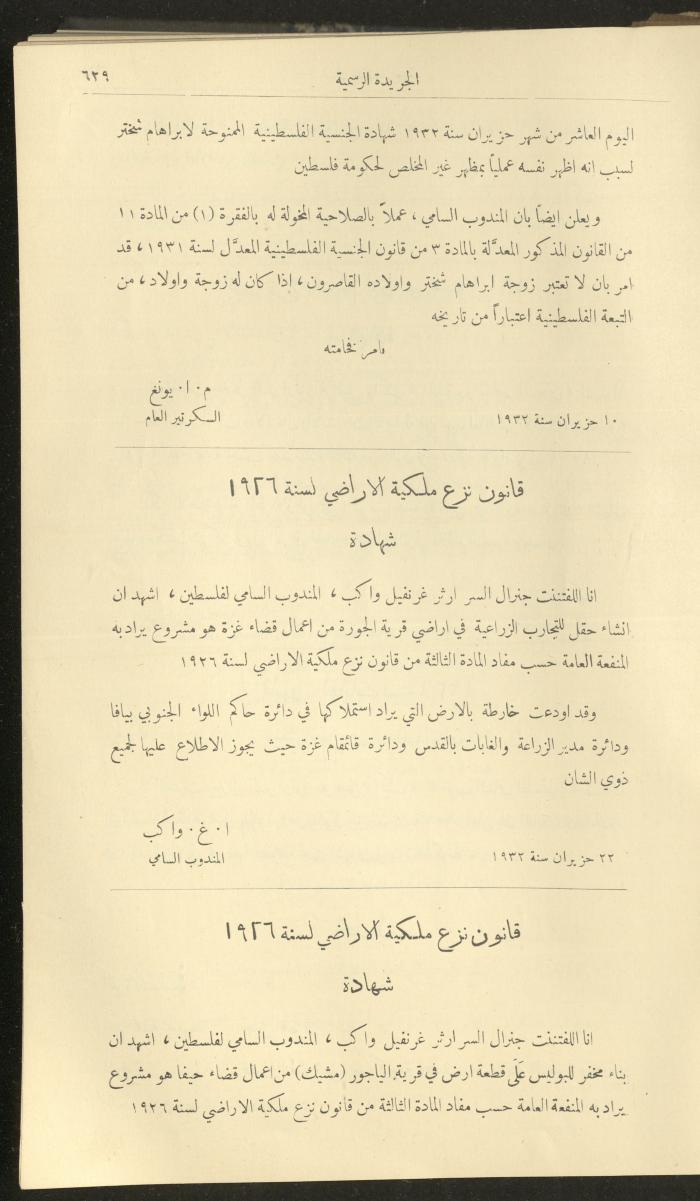 الجريدة الرسمية ٦٢٩
اليوم العاشر من شهر حزيران سنة ١٩٣٢ شهادة الجنسية الفلسطينية الممنوحة لابراهام شختر
لسبب انه اظهر نفسه عملياً بمظهر غير المخلص لحكومة فلسطين
ويعلن ايضاً بان المندوب السامي ، عملاً بالصلاحية المخولة له بالفقرة (١) من المادة ١١
من القانون المذكور المعدَّلة بالمادة ٣ من قانون الجنسية الفلسطينية المعدَّل لسنة ١٩٣١ ، قد
امر بان لا تعتبر زوجة ابراهام شختر واولاده القاصرون ، اذا كان له زوجة واولاد ، من
التبعة الفلسطينية اعتباراً من تاريخه
بامر فخامته
م . ا . يونغ
١٠ حزيران سنة ١٩٣٢ السكرتير العام
قانون نزع ملكية الاراضي لسنة ١٩٢٦
شهادة
انا اللفتننت جنرال السر ارثر غرنفيل واكب ، المندوب السامي لفلسطين ، اشهد ان
انشاء حقل للتجارب الزراعية في اراضي قرية الجورة من اعمال قضاء غزة هو مشروع يراد به
المنفعة العامة حسب مفاد المادة الثالثة من قانون نزع ملكية الاراضي لسنة ١٩٢٦
وقد اودعت خارطة بالارض التي يراد استملاكها في دائرة حاكم اللواء الجنوبي بيافا
ودائرة مدير الزراعة والغابات بالقدس ودائرة قائمقام غزة حيث يجوز الاطلاع عليها لجميع
ذوي الشان
ا . غ . واكب
٢٢ حزيران سنة ١٩٣٢ المندوب السامي
قانون نزع ملكية الاراضي لسنة ١٩٢٦
شهادة
انا اللفتننت جنرال السر ارثر غرنفيل واكب ، المندوب السامي لفلسطين ، اشهد ان
بناء مخفر للبوليس عَلَى قطعة ارض في قرية الياجور (مشيك) من اعمال قضاء حيفا هو مشروع
يراد به المنفعة العامة حسب مفاد المادة الثالثة من قانون نزع ملكية الاراضي لسنة ١٩٢٦